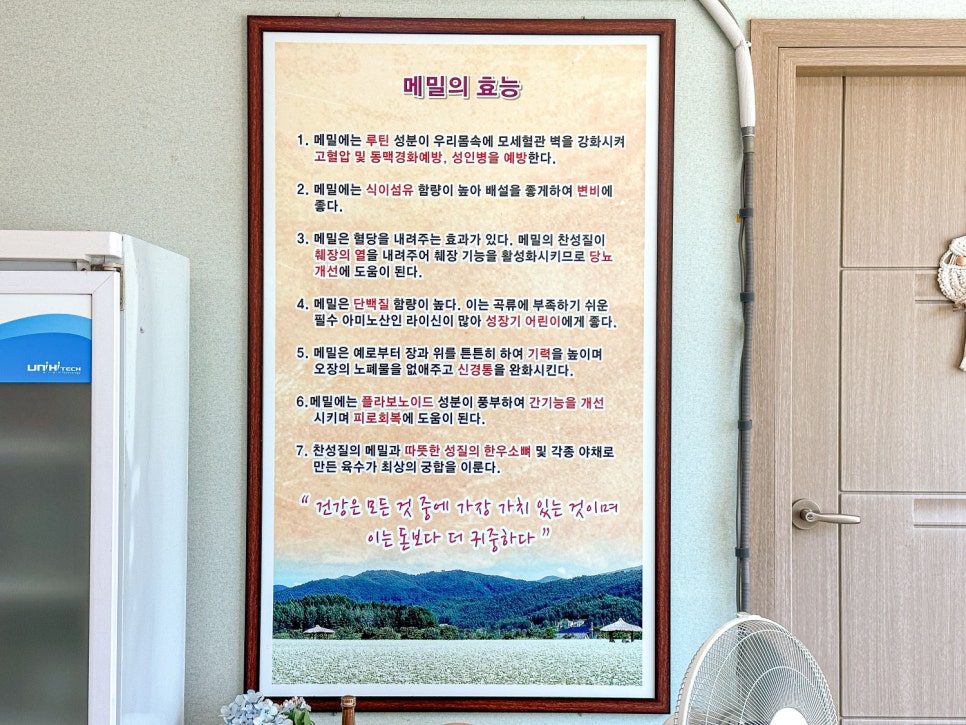 메밀의 효능
1. 메밀에는 루틴 성분이 우리몸속에 모세혈관 벽을 강화시켜
고혈압 및 동맥경화예방, 성인병을 예방한다.
2. 메밀에는 식이섬유 함량이 높아 배설을 좋게하여 변비에
좋다.
3. 메밀은 혈당을 내려주는 효과가 있다. 메밀의 찬성질이
췌장의 열을 내려주어 췌장 기능을 활성화시키므로 당뇨
개선에 도움이 된다.
4. 메밀은 단백질 함량이 높다. 이는 곡류에 부족하기 쉬운
필수 아미노산인 라이신이 많아 성장기 어린이에게 좋다.
5. 메밀은 예로부터 장과 위를 튼튼히 하여 기력을 높이며
오장의 노폐물을 없애주고 신경통을 완화시킨다.
6.메밀에는 플라보노이드 성분이 풍부하여 간기능을 개선
시키며 피로회복에 도움이 된다.
7. 찬성질의 메밀과 따뜻한 성질의 한우소뼈 및 각종 야채로
만든 육수가 최상의 궁합을 이룬다.
“ 건강은 모든 것 중에 가장 가치 있는 것이며
이는 돈보다 더 귀중하다 ”
UNIHITECH